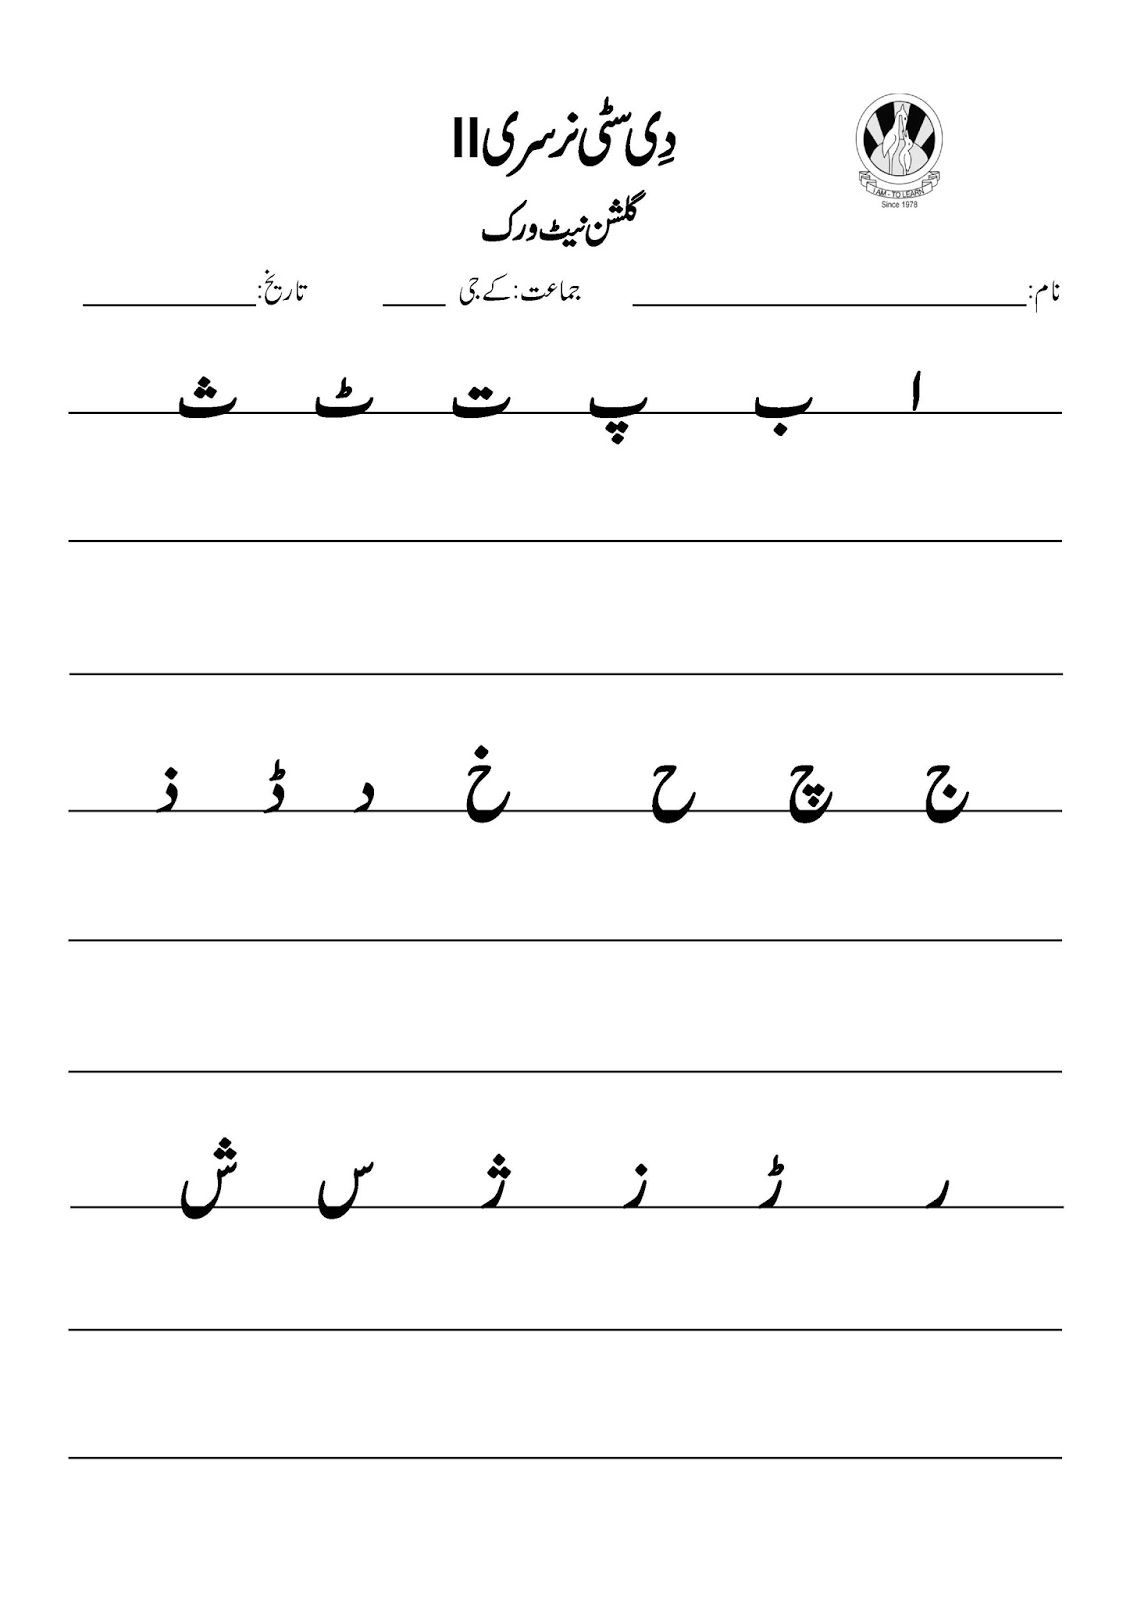 دِی سٹی نرسری II
I AM - TO LEARN
Since 1978
گلشن نیٹ ورک
نام: جماعت: کے جی تاریخ:
ا ب پ ت ٹ ث
ج چ ح خ د ڈ ذ
ر ڑ ز ژ س ش